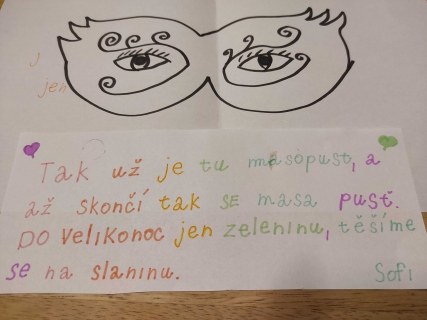 j
jen
Tak už je tu masopust, a
až skončí tak SE masa pusť.
DO VELIKONOC jen zeleninu, těšíme
se na slaninu.
Sofi